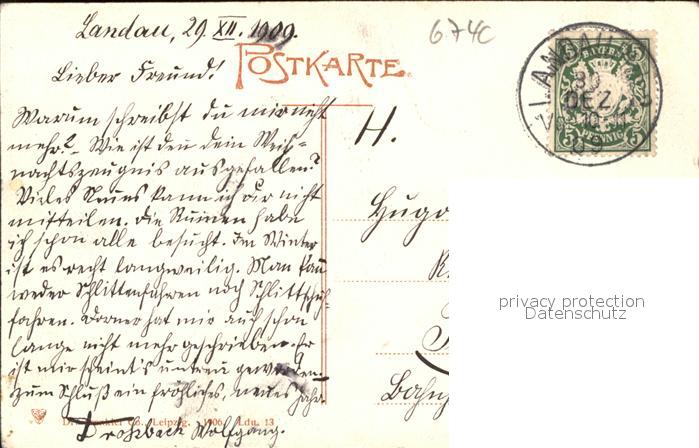 Landau, 29. XII. 1909.
674c
POSTKARTE.
Lieber Freund!
BAYERN
5 5
PFENNIG
LANDAU
30
DEZ
09
Warum schreibst du mir nicht
mehr? Wie ist den dein Weih-
nachtszeugnis ausgefallen?
Vieles Neues kann ich dir nicht
mitteilen. Die Ruinen habe
ich schon alle besucht. Im Winter
ist es recht langweilig. Man kann
weder Schlittenfahren noch Schlittschuh-
fahren. Dorner hat mir auch schon
lange nicht mehr geschrieben. Er
ist mir scheint's untreu geworden.
Zum Schluß ein fröhliches, neues Jahr.
Drohbach Wolfgang.
H.
Hugo
Bahn
privacy protection
Datenschutz
Co., Leipzig. 1906. Ldu. 13